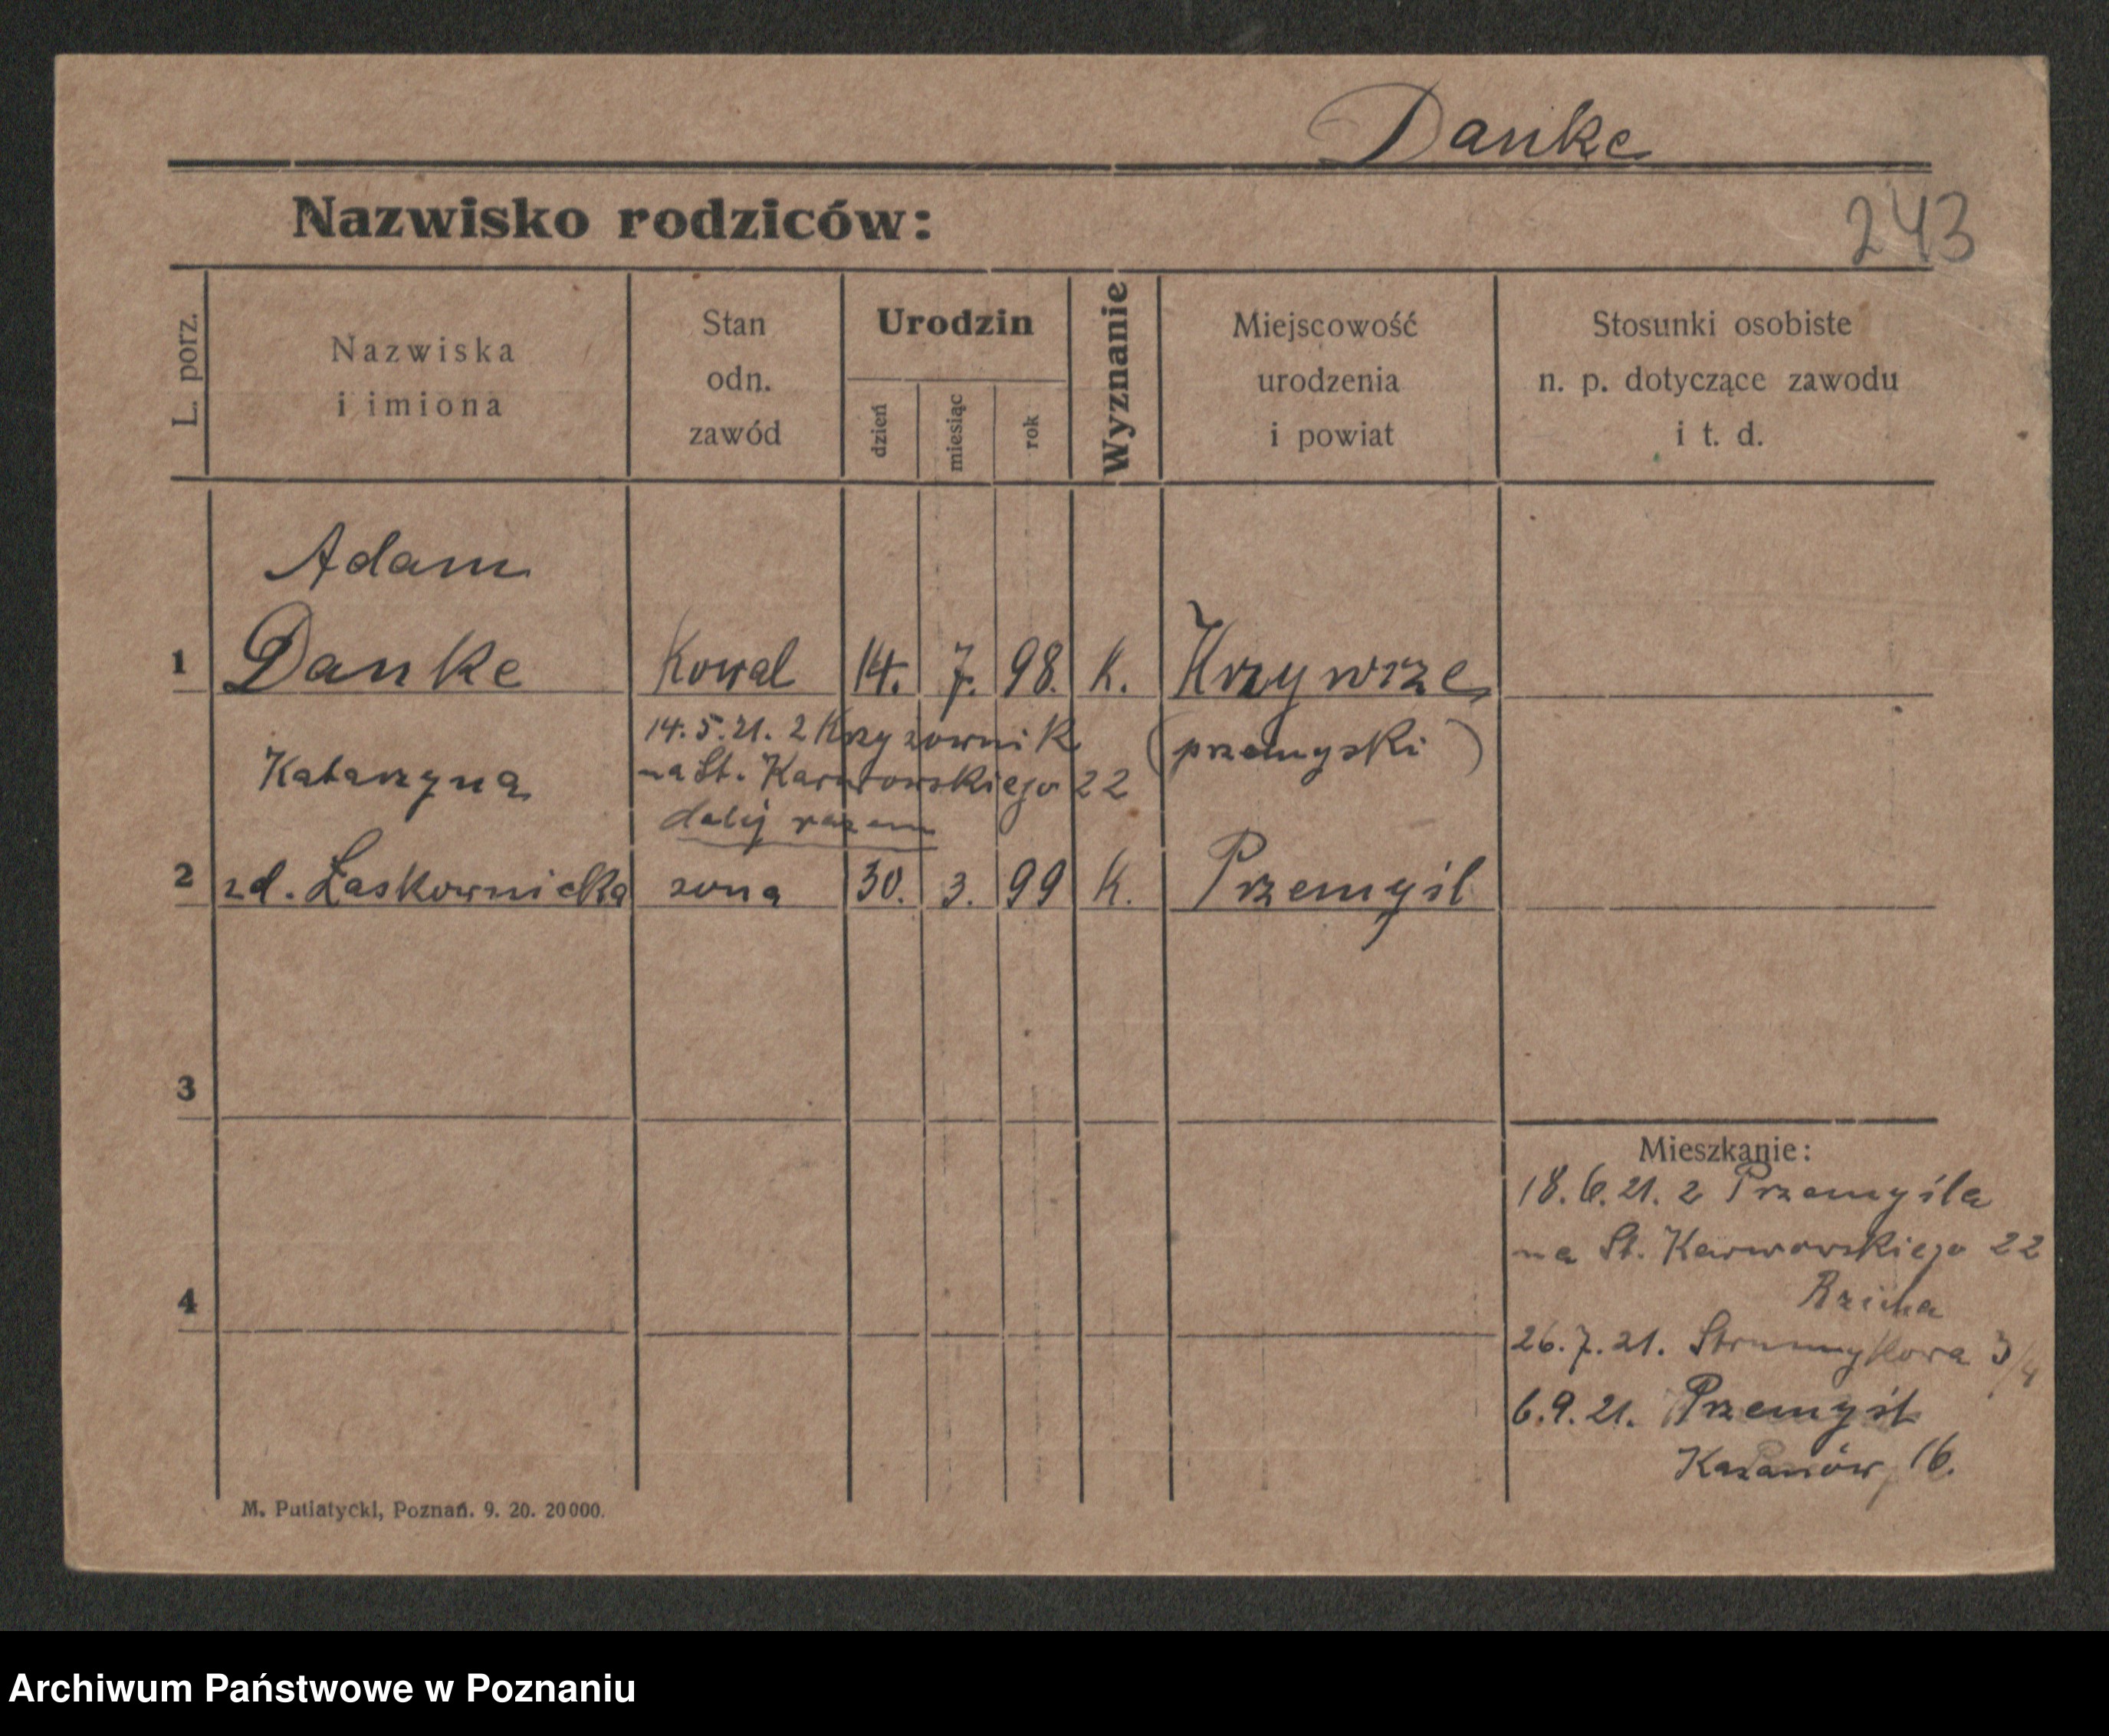 Danke
Nazwisko rodziców:
243
L. porz.
Nazwiska
i imiona
Stan
odn.
zawód
Urodzin
dzień
miesiąc
rok
Wyznanie
Miejscowość
urodzenia
i powiat
Stosunki osobiste
n. p. dotyczące zawodu
i t. d.
Adam
1 Danke Kowal 14. 7. 98. K. Krzywcze
14.5.21. z Krzyżownik (przemyski)
Katarzyna na St. Karwowskiego 22
dalij razem
2 zd. Laskownicka zona 30. 3. 99 K. Przemyśl
3
Mieszkanie:
18.6.21. z Przemyśla
na St. Karwowskiego 22
4
26.7.21. Strumykowa 3/4
6.9.21. Przemyśl
Kazanów 16.
M. Putiatycki, Poznań. 9. 20. 20000.
Archiwum Państwowe w Poznaniu